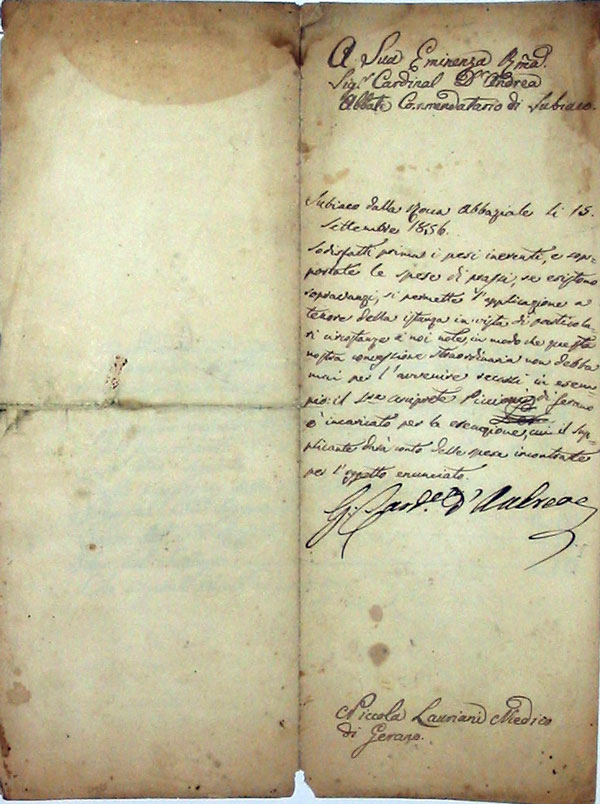 A Sua Eminenza Rma.
Sigr. Cardinal Dn. Andrea
Abbate Commendatario di Subiaco.
Subiaco dalla Rocca Abbaziale li 15.
Settembre 1856.
Sodisfatti prima i pesi inerenti, e sop-
portate le spese di prassi, se esistono
sopravanzi, si permette l'applicazione a
tenore della istanza in vista di particola-
ri circostanze a noi note, in modo che questa
nostra concessione straordinaria non debba
mai per l'avvenire recarsi in esem-
pio: il Sre Arciprete Piccioni di Gerano
è incaricato per la esecuzione, cui il sup-
plicante darà conto delle spese incontrate
per l'oggetto enunciato.
G. Card.e D'Andrea
Niccola Lauriani Medico
di Gerano.